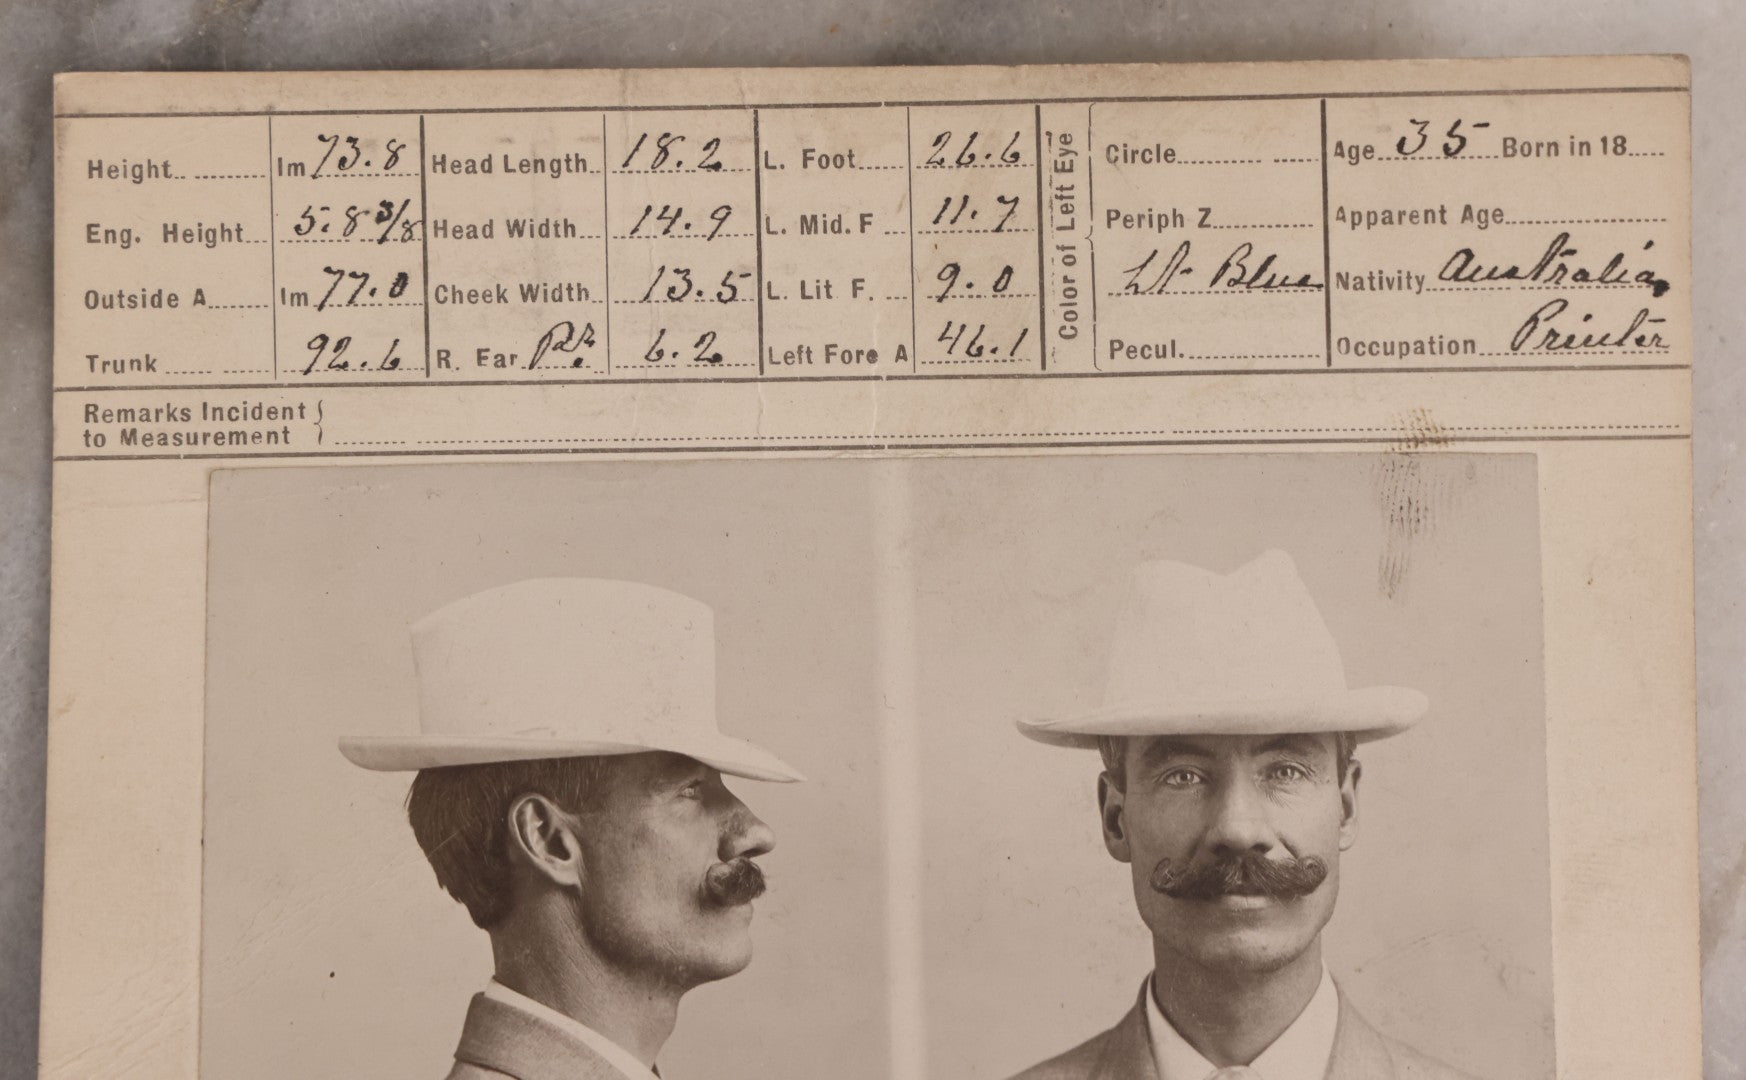 Height 1m 73.8 Head Length 18.2 L. Foot 26.6 Circle Age 35 Born in 18
Eng. Height 5.8 3/8 Head Width 14.9 L. Mid. F 11.7 Periph Z. Apparent Age
Outside A 1m 77.0 Cheek Width 13.5 L. Lit F. 9.0 Lt Blue Nativity Australia
Trunk 92.6 R. Ear 6.2 Left Fore A 46.1 Pecul. Occupation Printer
Color of Left Eye
Remarks Incident
to Measurement